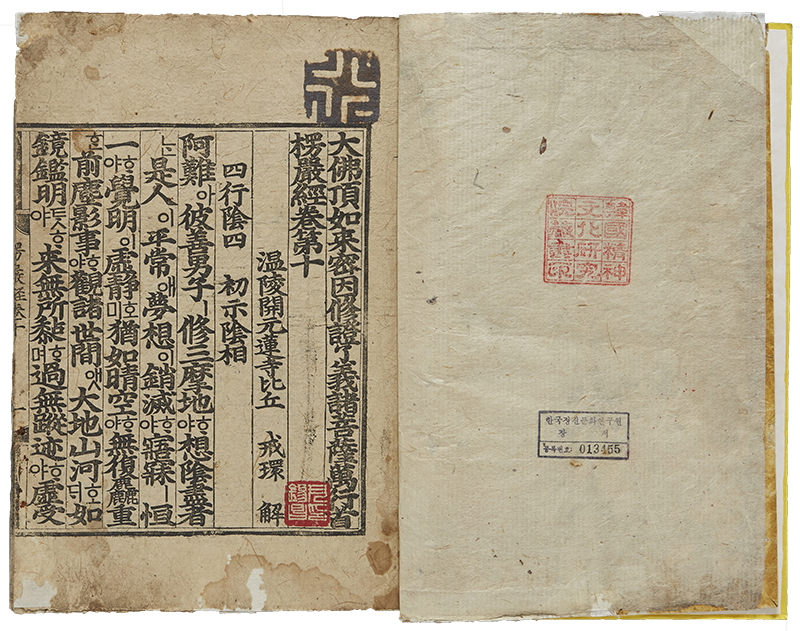 大佛頂如來密因修證了義諸菩薩萬行首
楞嚴經卷第十
温陵開元蓮寺比丘 戒環 解
四行陰四 初示陰相
阿難아彼善男子ㅣ修三摩地ᄒᆞ야想陰盡者
ᄂᆞᆫ是人이平常애夢想이銷滅ᄒᆞ야寤寐ㅣ恒
一ᄒᆞ야覺明이虛靜호미猶如晴空ᄒᆞ야無復麤重
ᄒᆞᆫ前塵影事ᄒᆞ야觀諸世間앳大地山河호ᄃᆡ如
鏡鑑明ᄐᆞᆺᄒᆞ야來無所黏ᄒᆞ며過無蹤迹ᄒᆞ야虛受
楞嚴經卷十
一
韓國精神
文化研究
院藏書印
한국정신문화연구원
장 서
등록번호: 013455